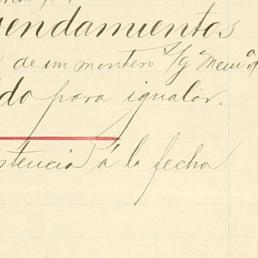 endamientos
de un montero S/g Meml
do para igualar.
stencia á la fecha